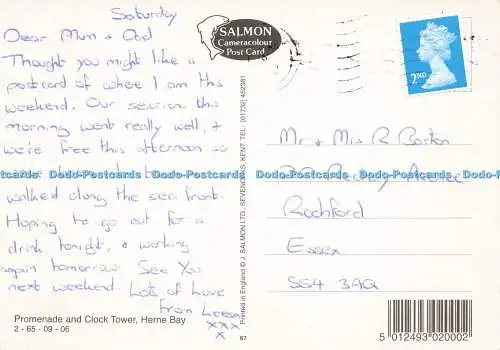 Saturday
Dear Mum + Dad
Thought you might like a
postcard of where I am this
weekend. Our session this
morning went really well, +
we're free this afternoon so
walked along the sea front.
Hoping to go out for a
drink tonight, + working
again tomorrow. See You
next weekend. Lots of Love
from
xxx
x
Promenade and Clock Tower, Herne Bay
2 - 65 - 09 - 06
SALMON
Cameracolour
Post Card
Printed in England © J. SALMON LTD., SEVENOAKS, KENT. TEL: (01732) 452381
87
2ND
Mr + Mrs R Barton
Rochford
Essex
SS4 3AQ
Dodo-Postcards Dodo-Postcards Dodo-Postcards Dodo-Postcards Dodo-Postcards
5 012493 020002